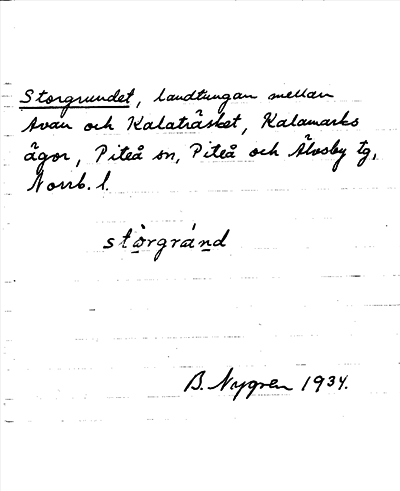 Storgrundet, landtungan mellan
Avan och Kalaträsket, Kalamarks
ägor, Piteå sn, Piteå och Älvsby tg,
Norrb. l.
stòrgránd
B. Nygren 1934.